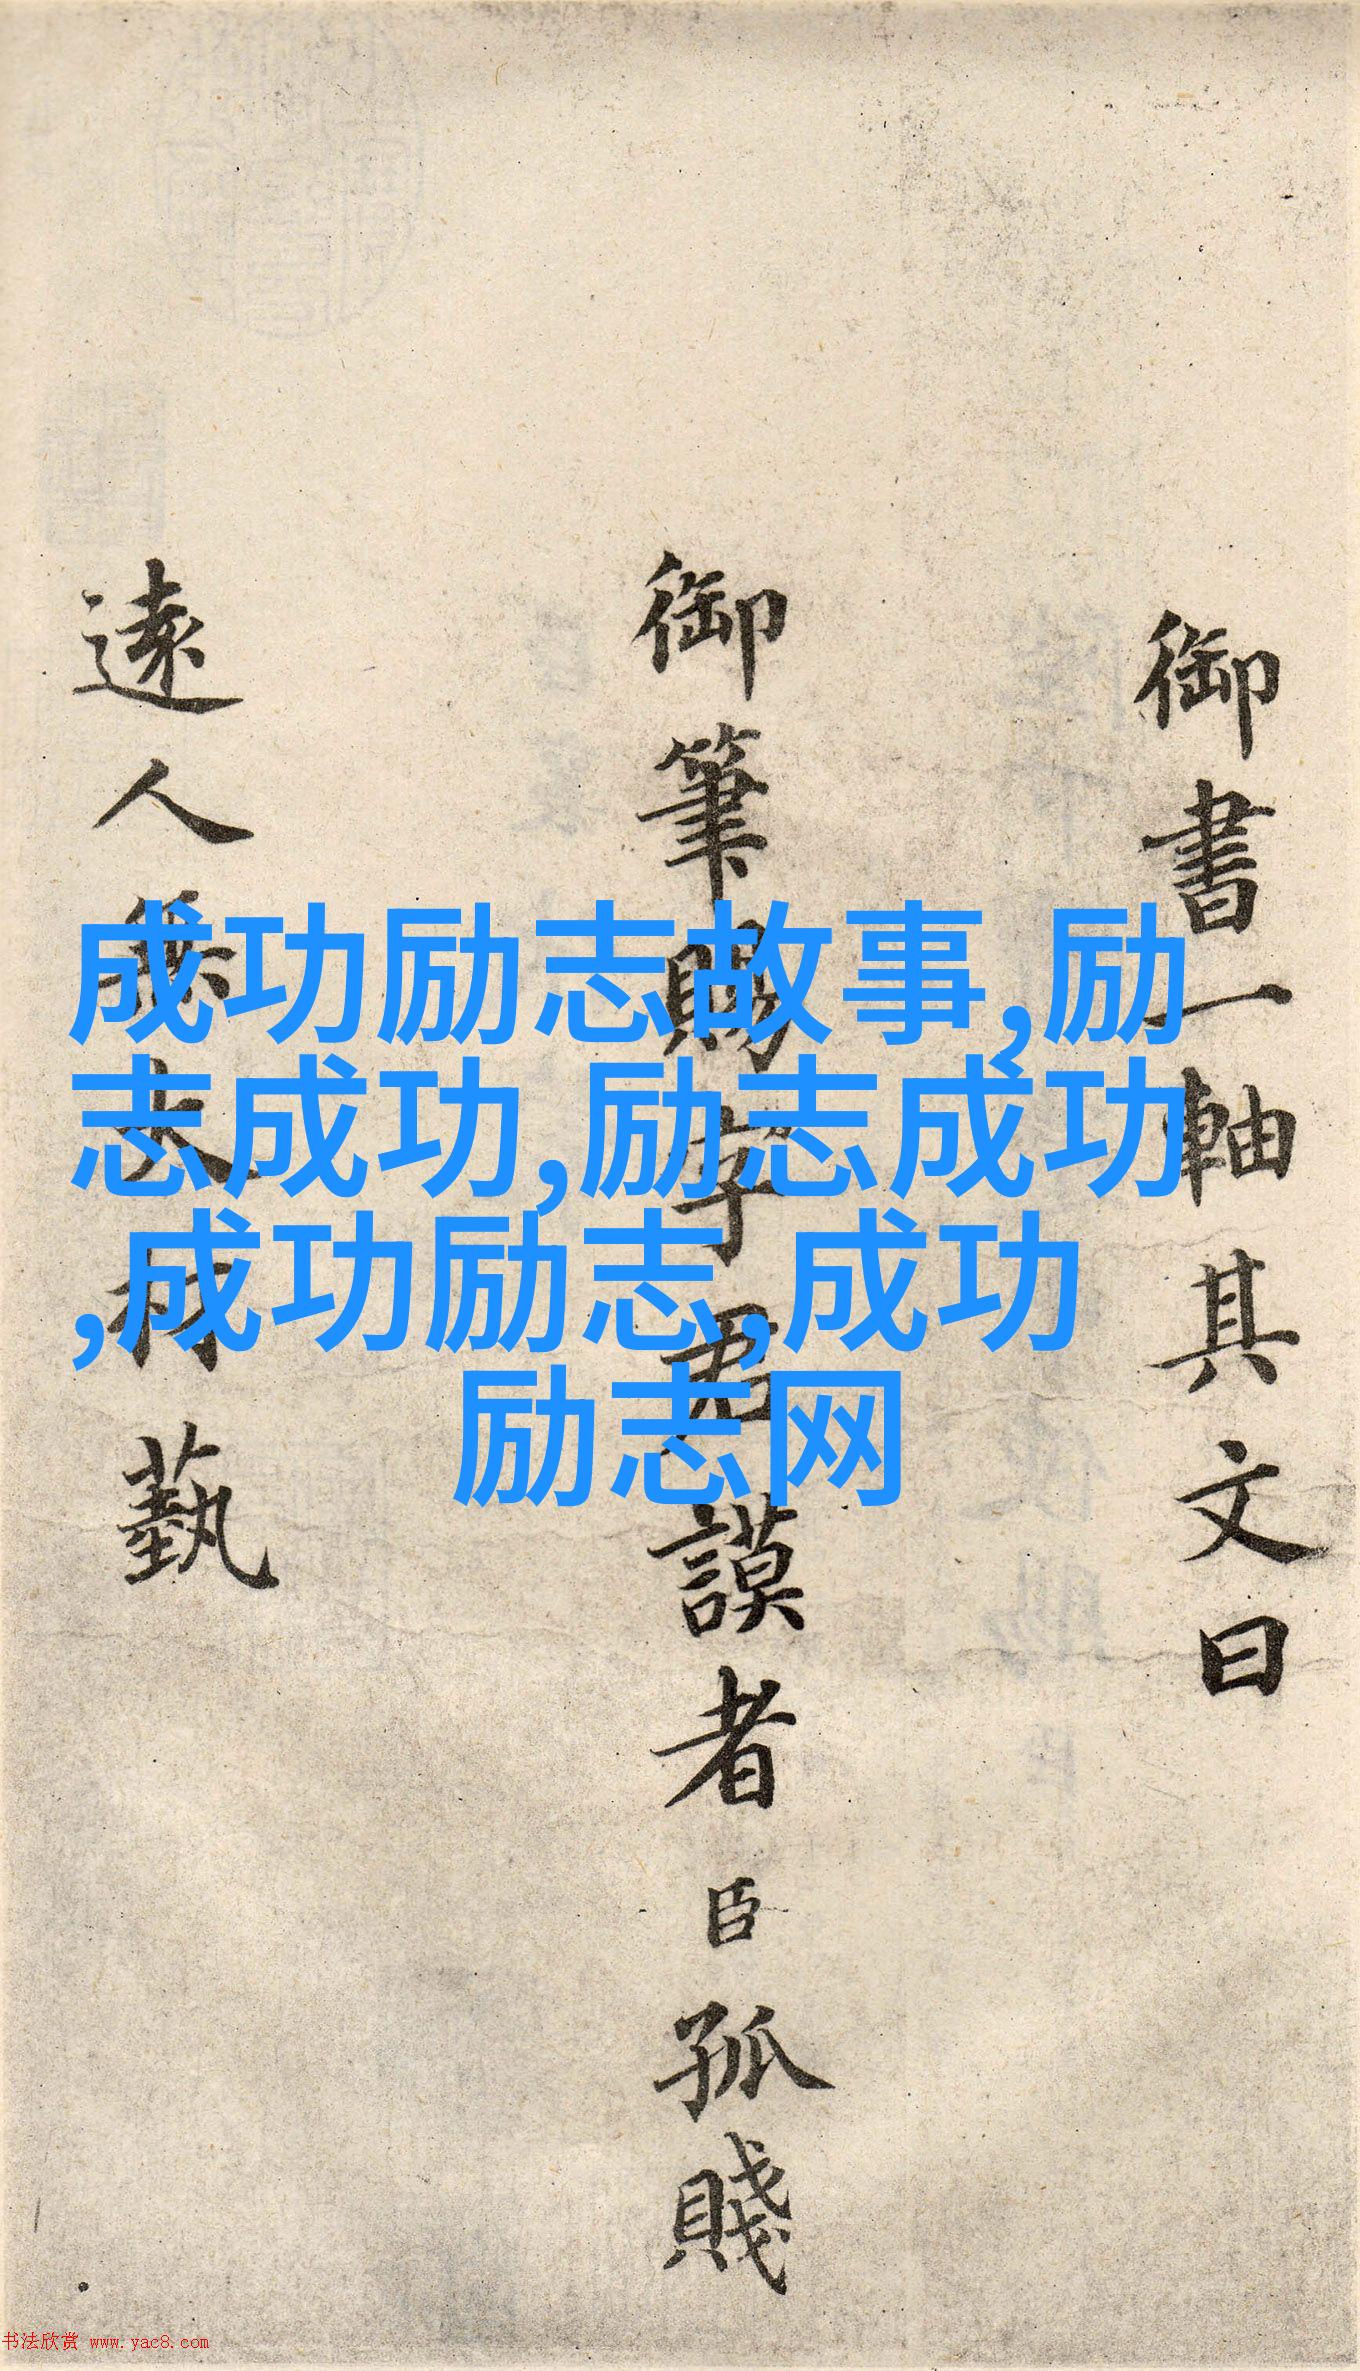 御書一軸其文曰
御筆賜字君謨者臣孤賤
遠人無大材藝
成功励志故事,励
志成功,励志成功
,成功励志,成功
励志网
书法欣赏 www.yac8.com